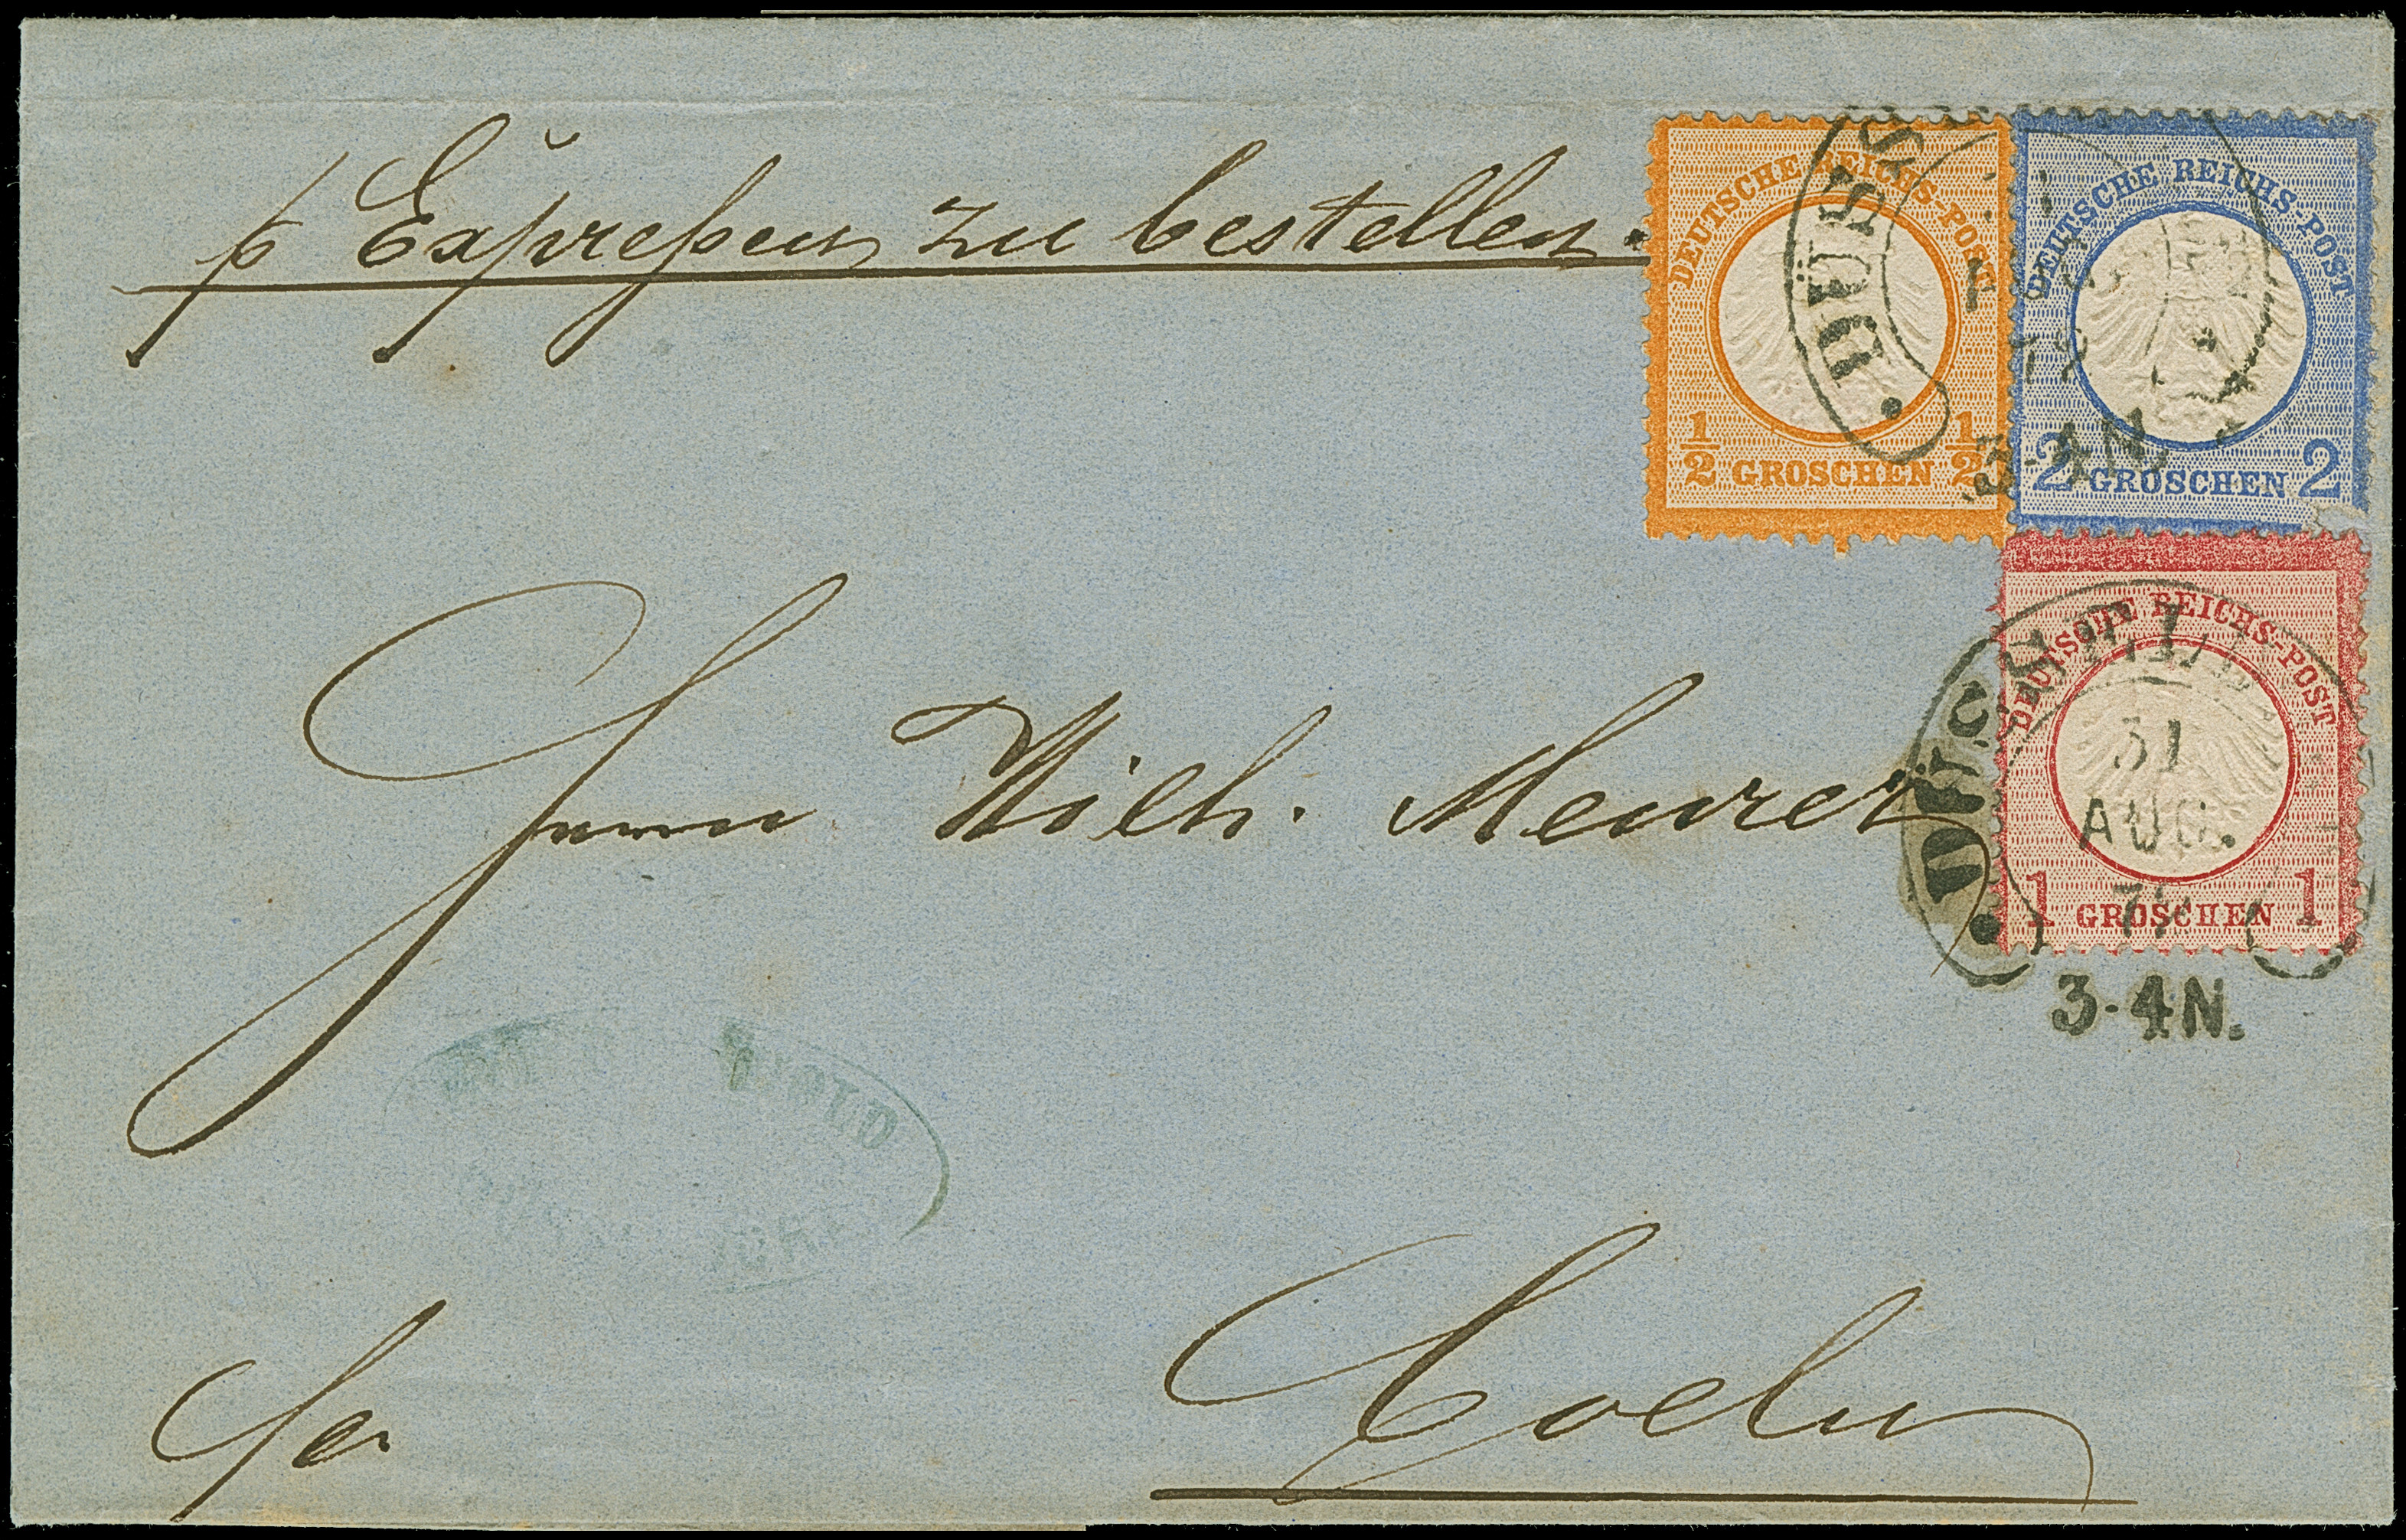 p Expreßen zu bestellen.
DEUTSCHE REICHS-POST
½ GROSCHEN ½
DÜSS
DEUTSCHE REICHS-POST
2 GROSCHEN 2
3-4N.
DEUTSCHE REICHS-POST
1 GROSCHEN 1
31
AUG.
3-4N.
Herrn Wilh. Meurer
Coeln